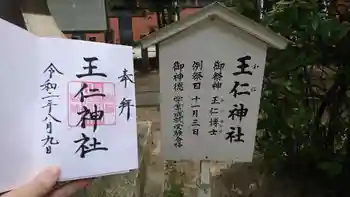 奉拝
王仁神社
令和二年八月九日
王仁神社
わに
御祭神 王仁博士
例祭日 十一月三日
御神徳 学業成就受験合格